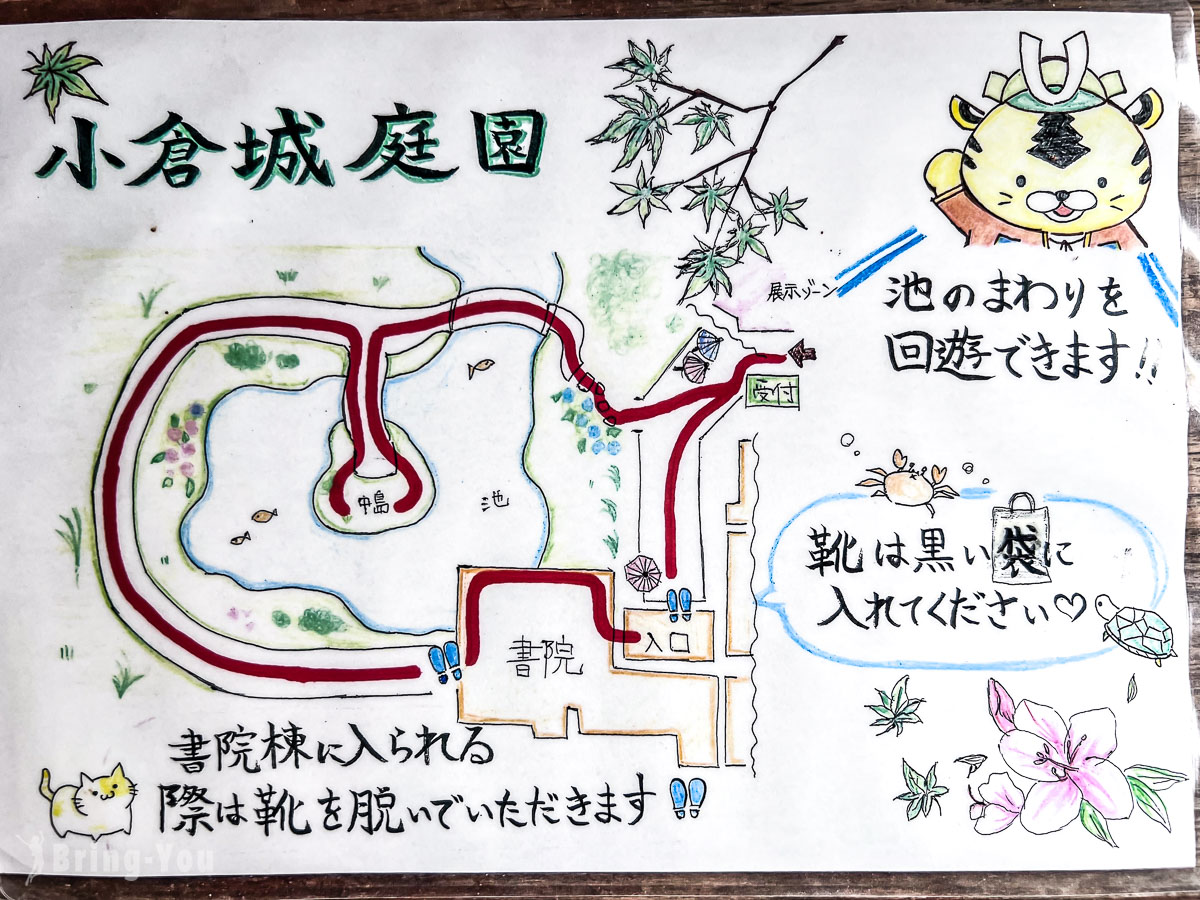 小倉城庭園
展示ゾーン
池のまわりを
回遊できます!!
受付
中島
池
靴は黒い袋に
入れてください♡
入口
書院
書院棟に入られる
際は靴を脱いでいただきます
Bring-You